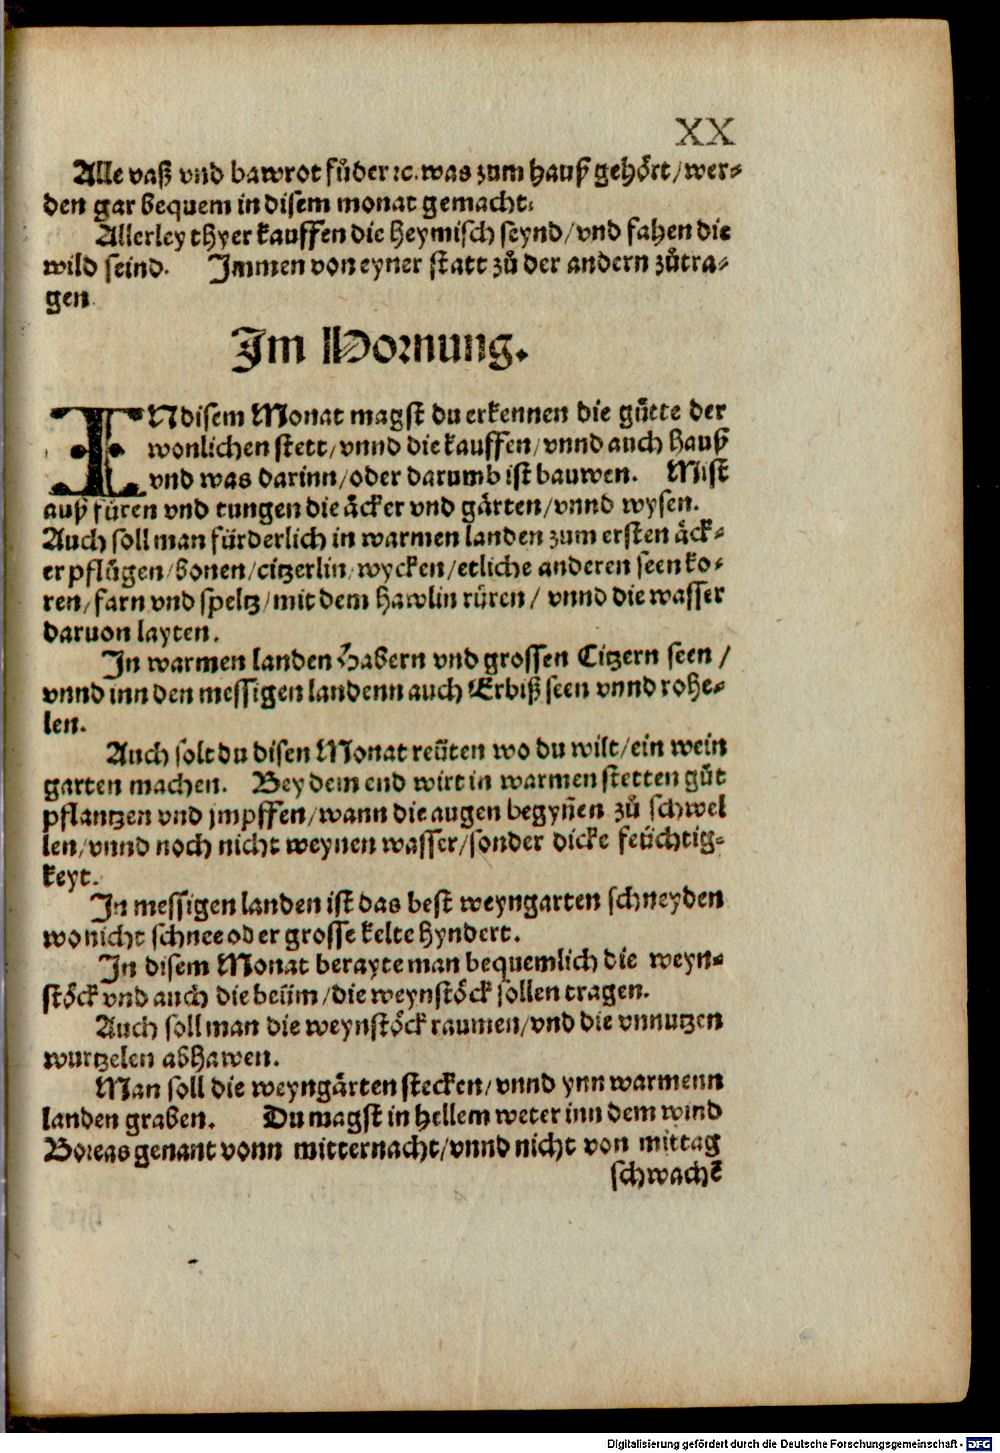 XX
Alle vaß vnd bawrot fuͦder ⁊c. was zum hauß gehoͤrt/wer-
den gar bequem in disem monat gemacht.
Allerley thyer kauffen die heymisch seynd/vnd fahen die
wild seind. Immen von eyner statt zuͦ der andern zuͦtra-
gen
Im Hornung.
INdisem Monat magst du erkennen die guͤtte der
wonlichen stett/vnnd die kauffen/vnnd auch hauß
vnd was darinn/oder darumb ist bauwen. Mist
auß fuͤren vnd tungen die aͤcker vnd gaͤrten/vnnd wysen.
Auch soll man fuͤrderlich in warmen landen zum ersten aͤck-
er pfluͤgen/bonen/citzerlin/wycken/etliche anderen seen ko-
ren/farn vnd speltz/mit dem hawlin ruͤren/ vnnd die wasser
daruon layten.
In warmen landen Habern vnd grossen Citzern seen/
vnnd inn den messigen landenn auch Erbiß seen vnnd rohe-
len.
Auch solt du disen Monat reuͤten wo du wilt/ein wein
garten machen. Bey dem end wirt in warmen stetten guͦt
pflantzen vnd jmpffen/wann die augen begyn̄en zuͦ schwel
len/vnnd noch nicht weynen wasser/sonder dicke feuͤchtig-
keyt.
In messigen landen ist das best weyngarten schneyden
wo nicht schnee oder grosse kelte hyndert.
In disem Monat berayte man bequemlich die weyn-
stoͤck vnd auch die beuͤm/die weynstoͤck sollen tragen.
Auch soll man die weynstoͤck raumen/vnd die vnnutzen
wurtzelen abhawen.
Man soll die weyngaͤrten stecken/vnnd ynn warmenn
landen graben. Du magst in hellem weter inn dem wind
Boreas genant vonn mitternacht/vnnd nicht von mittag
schwacht
Digitalisierung gefördert durch die Deutsche Forschungsgemeinschaft - DFG